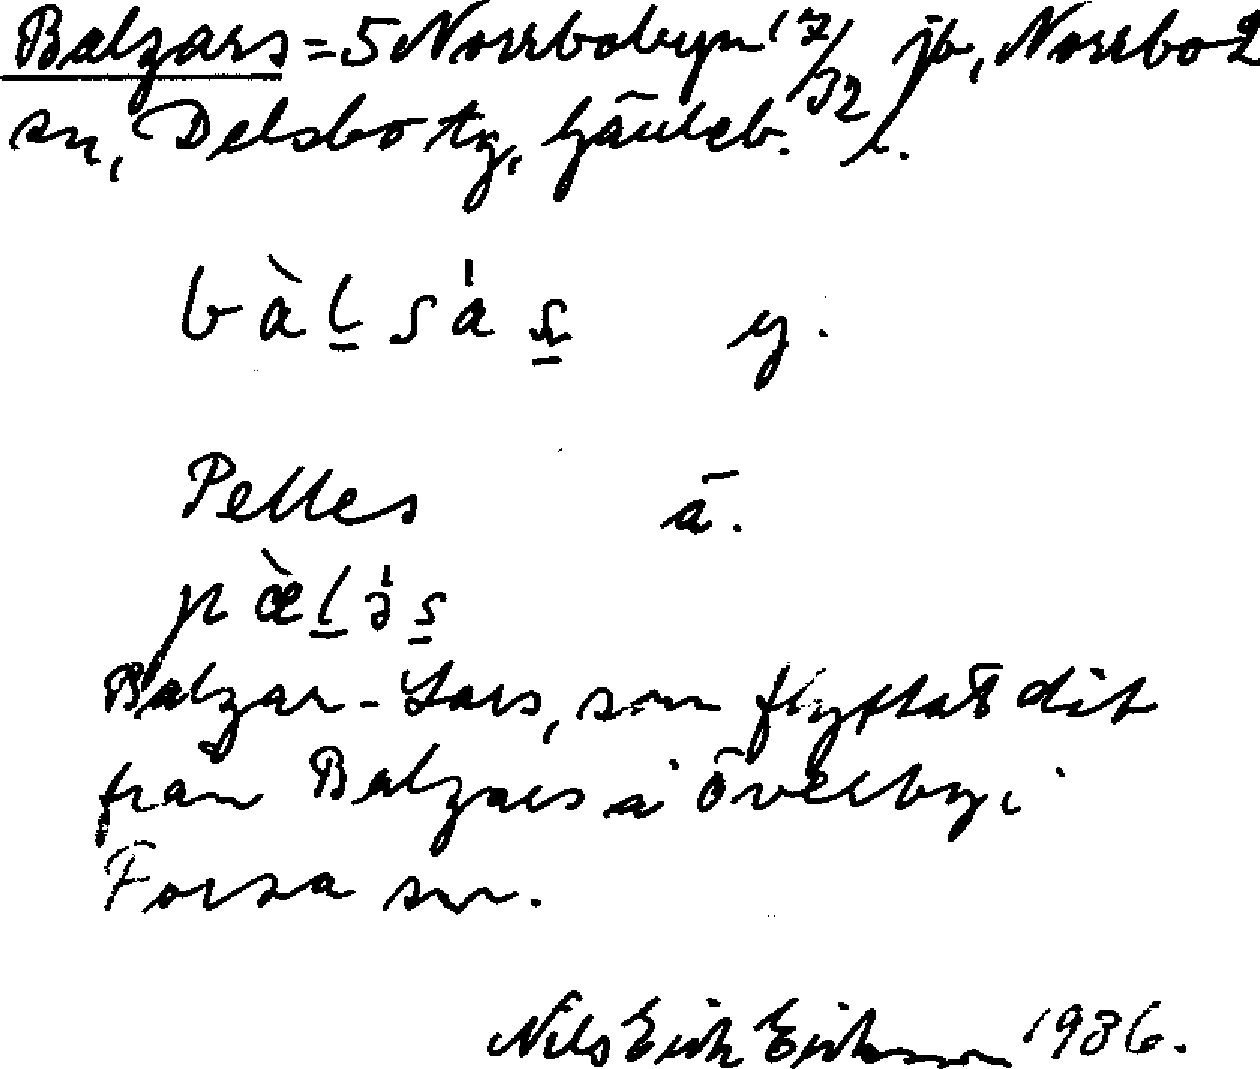 Balzars = 5 Norrbobyn 17/32 jb, Norrbo 2
sn, Delsbo tg, Gävleb. l.
bàḻsȧṣ y.
Pelles ä.
pæ̀ḻə̇s̱
Balzar-Lars, som flyttat dit
från Balzars i Överby i
Forsa sn.
Nils Erik Eriksson 1936.